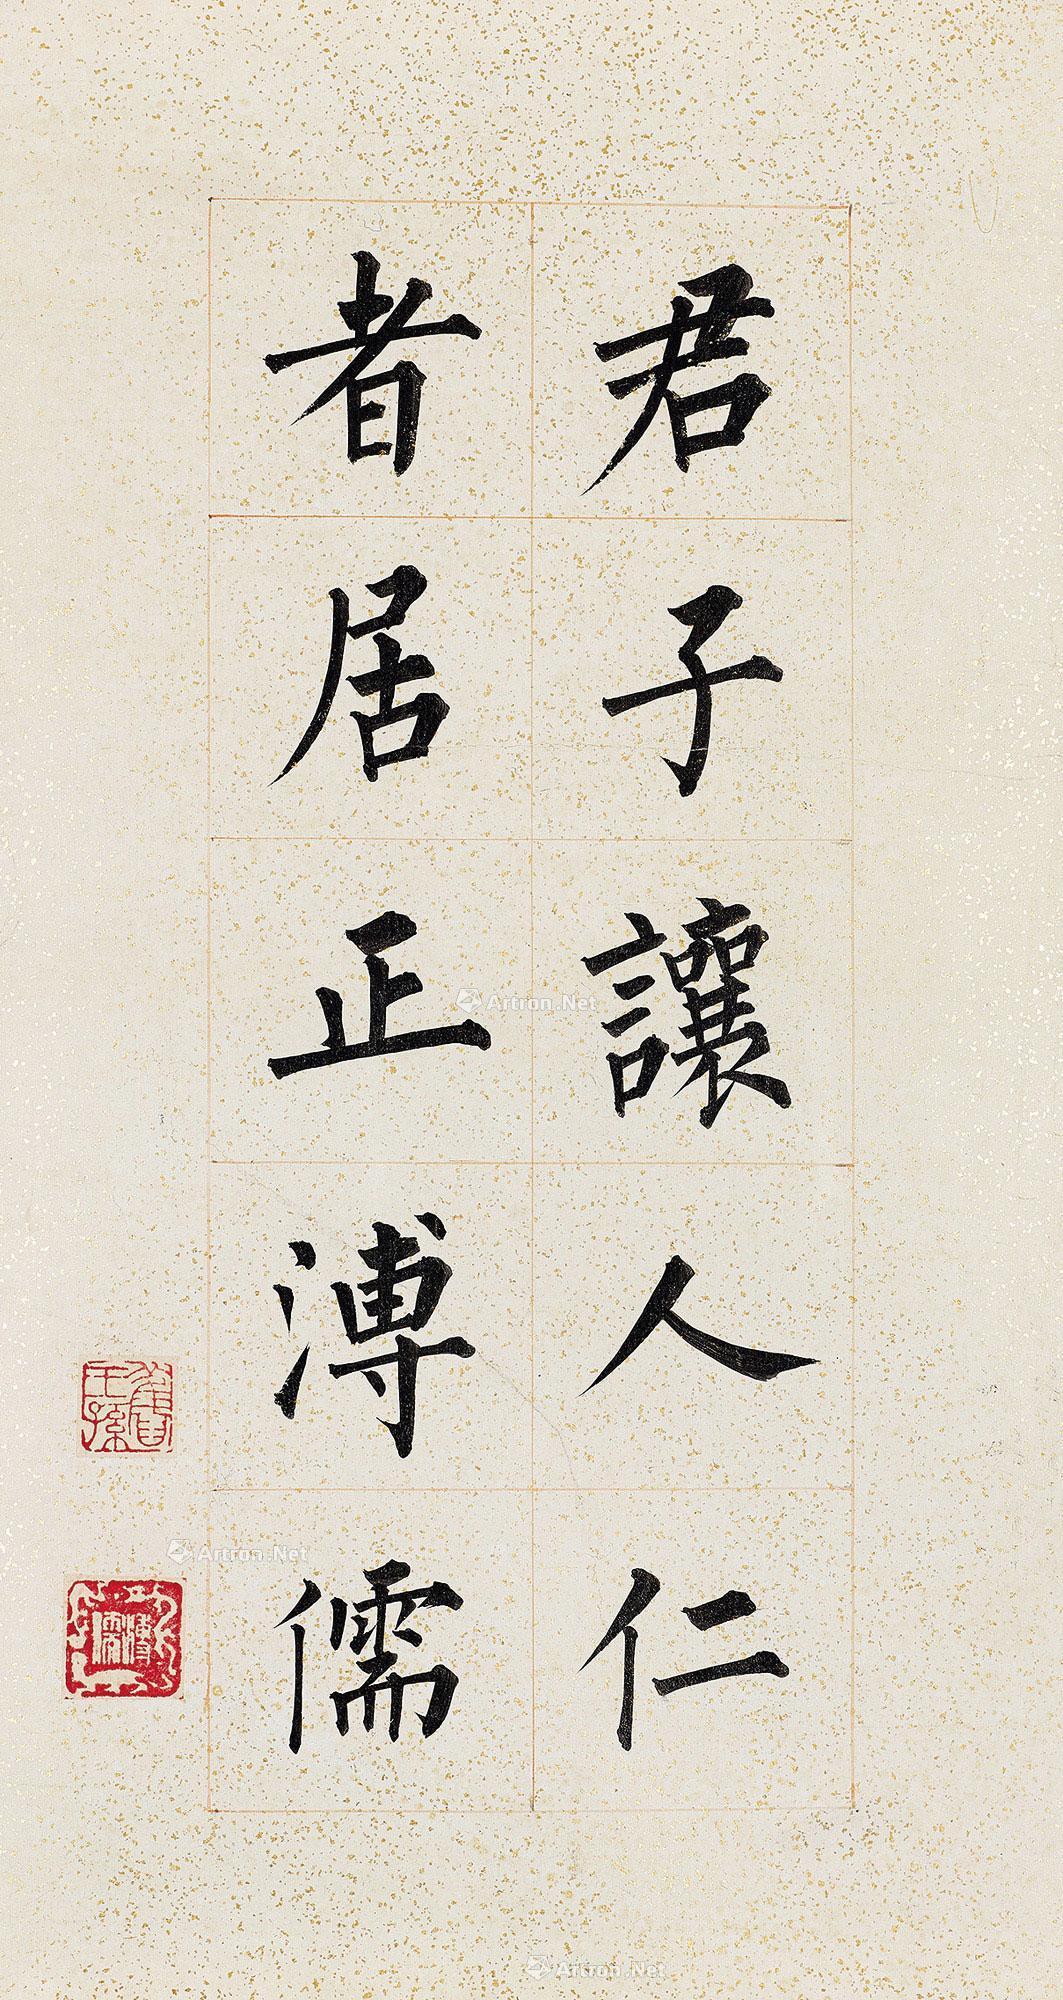 君子讓人仁
者居正溥儒
舊王孫
溥儒
Artron.Net
Artron.Net
Artron.Net